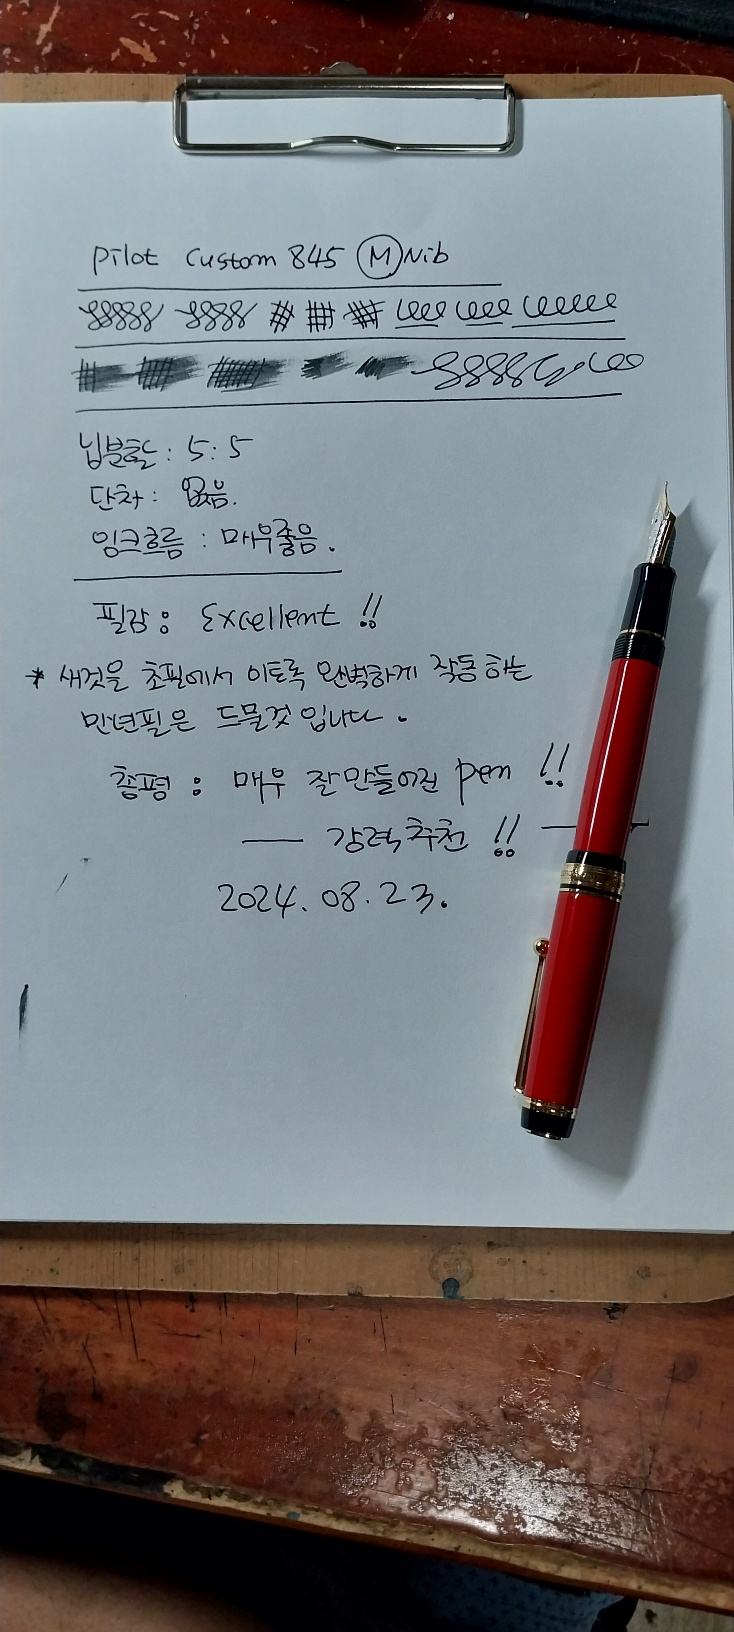 Pilot Custom 845 M Nib
닙분할 : 5:5
단차 : 없음.
잉크흐름 : 매우좋음.
필감 : Excellent !!
* 새것을 초필에서 이토록 완벽하게 작동하는
만년필은 드물것입니다.
총평 : 매우 잘만들어진 pen !!
— 강력추천 !! —
2024. 08. 23.